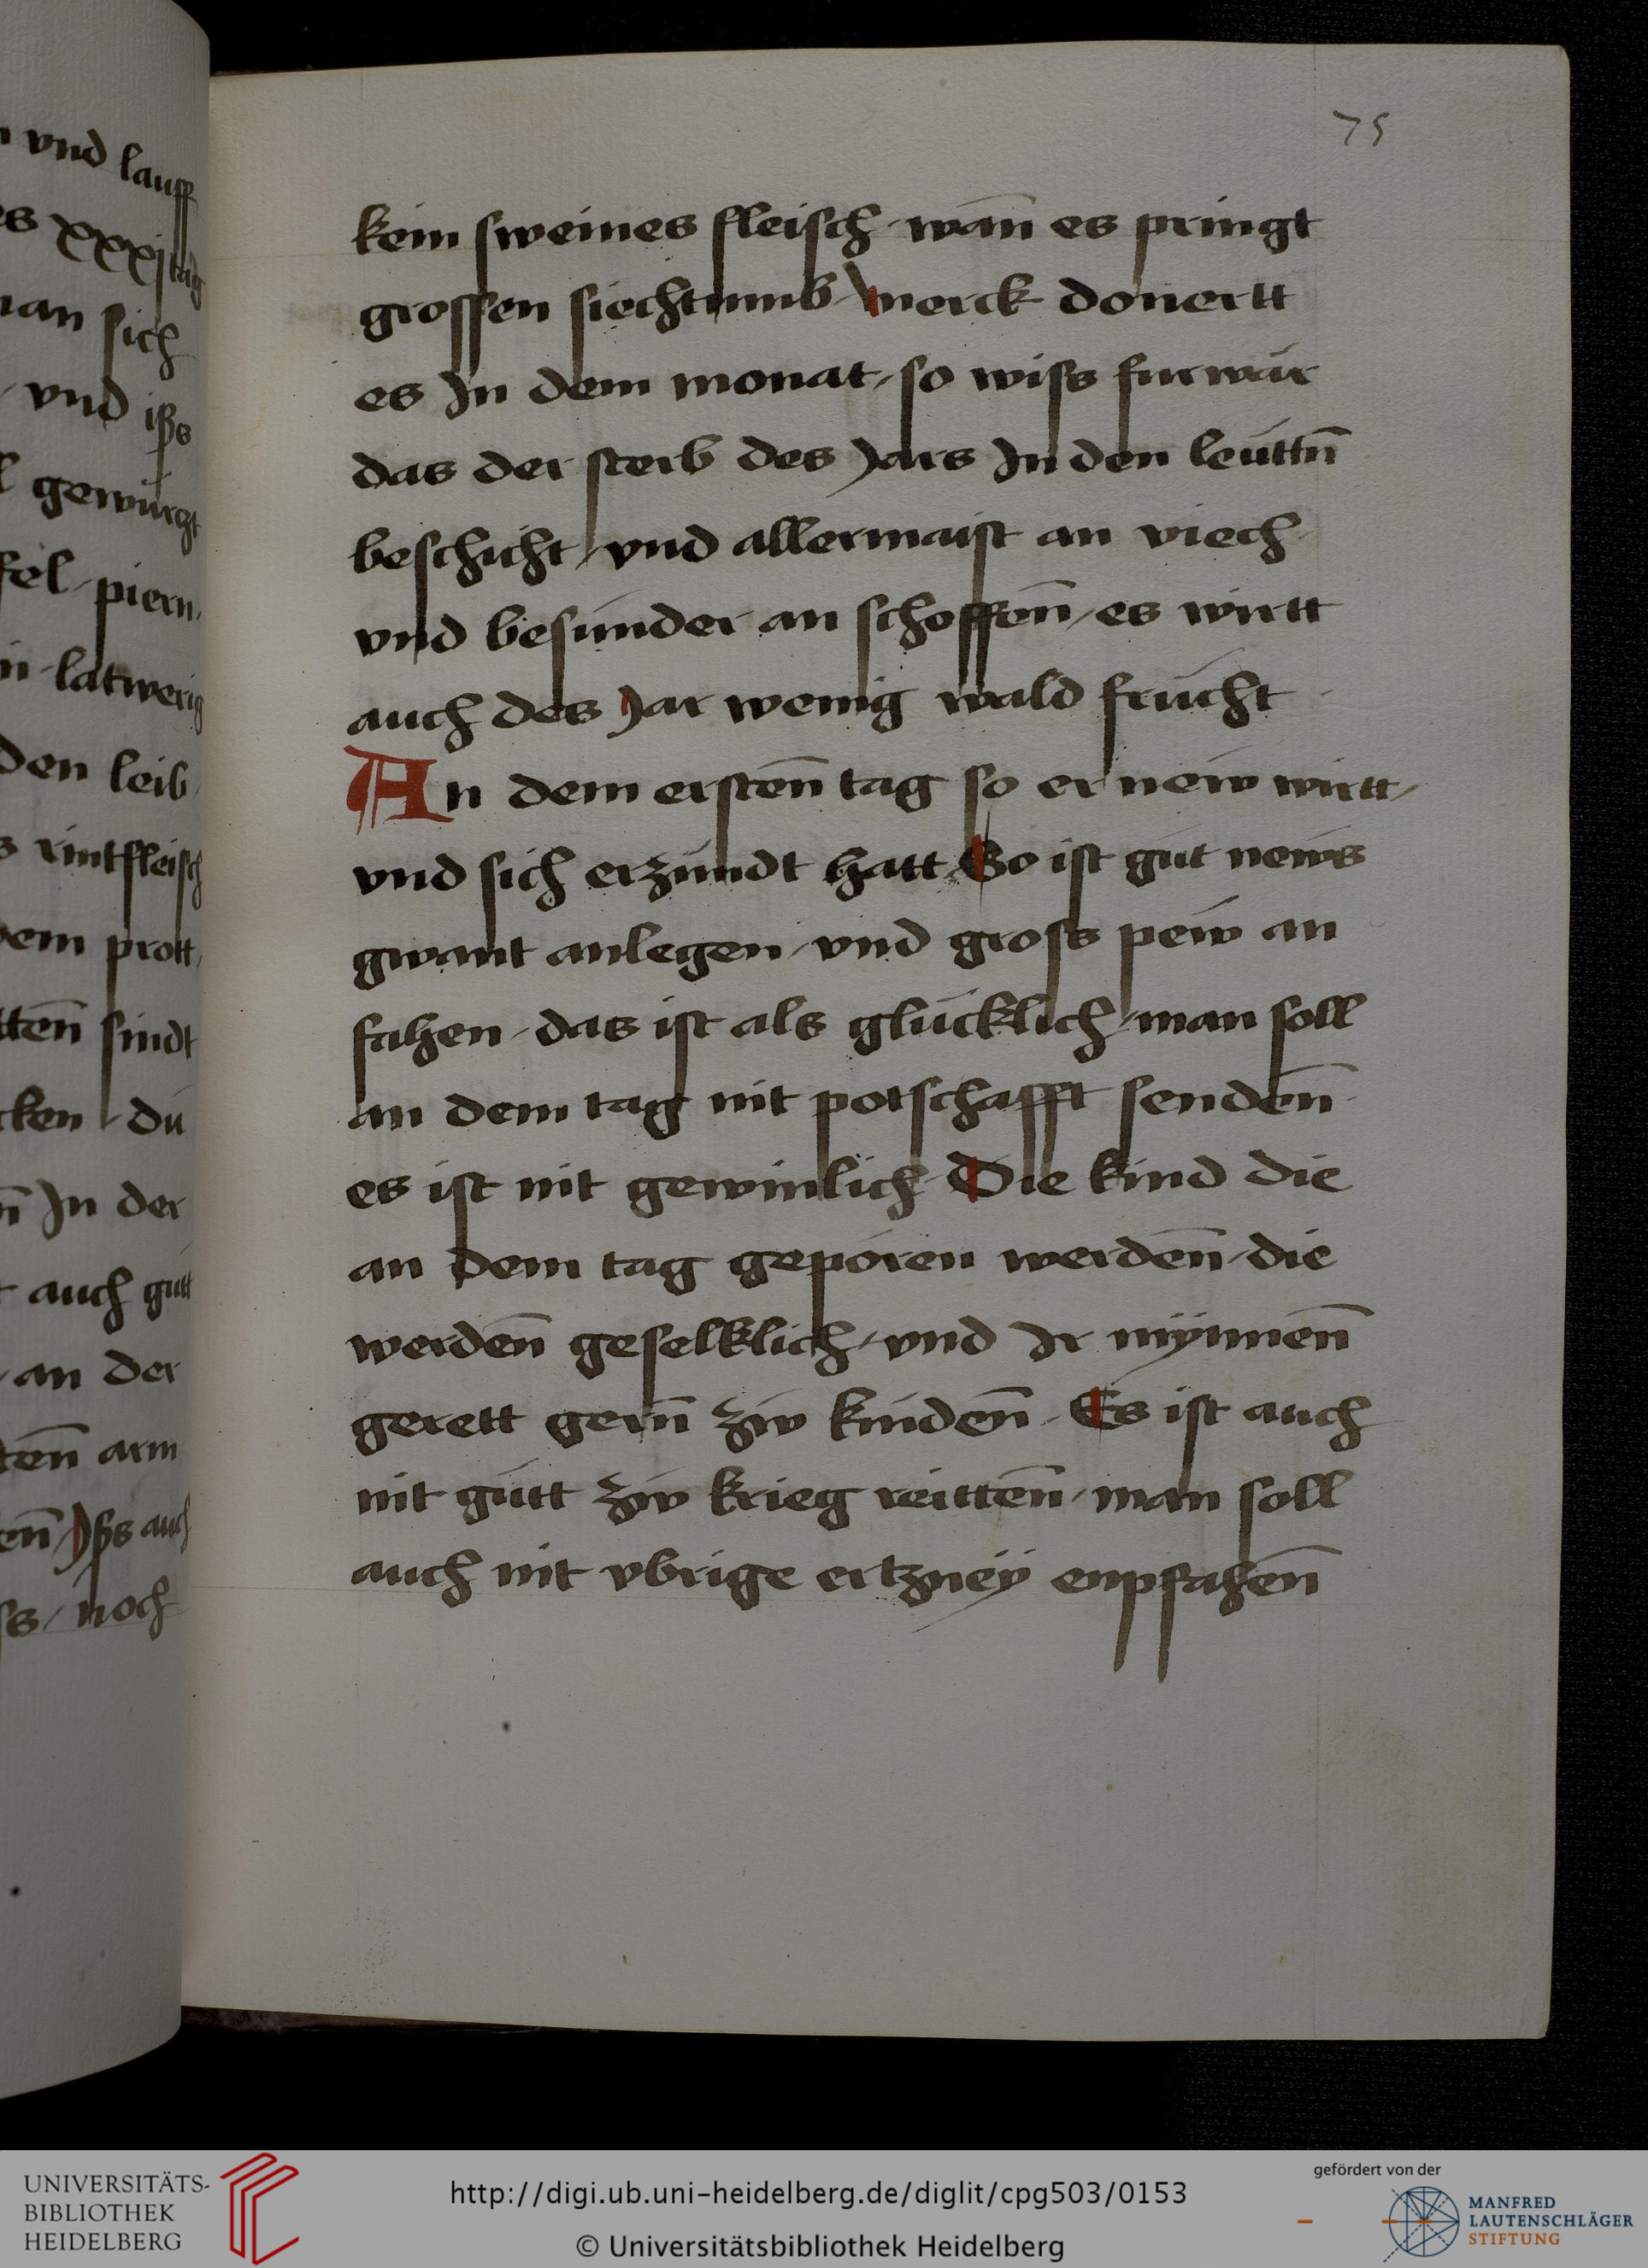 75
kein sweines fleisch / wan̄ es pringt
grossen siechtumb / Merck donertt
es In dem monat / so wiss furwär
das der sterb des Jars In den leüttn̄
beschicht / vnd allermaist an viech /
vnd besünder an schoffen̄ / es wirtt
auch des Jar wenig wald frücht
An dem ersten̄ tag so er new wirtt /
vnd sich erzündt hatt So ist güt news
gwant anlegen / vnd gross pew an
fahen / das ist als glücklich / man soll
an dem tag nit potschafft senden̄
es ist nit gewinlich / Die kind die
an dem tag geporen werden̄ / die
werden̄ geselklich / vnd Ir mÿnnen̄
gerett gern̄ zw kinden̄ / Es ist auch
nit gütt zw krieg reitten̄ / man soll
auch nit vbrige ertzneÿ enpfahen̄
vnd lauff
xxxj tag
man sich
/ vnd iss
gewürgt
piern /
latwerig
den leib /
rintfleisch
dem prott /
sindt
dü
In der
auch gütt
/ an der
arm
Iss auch
/ noch
UNIVERSITÄTS-
BIBLIOTHEK
HEIDELBERG
http://digi.ub.uni-heidelberg.de/diglit/cpg503/0153
© Universitätsbibliothek Heidelberg
gefördert von der
MANFRED
LAUTENSCHLÄGER
STIFTUNG